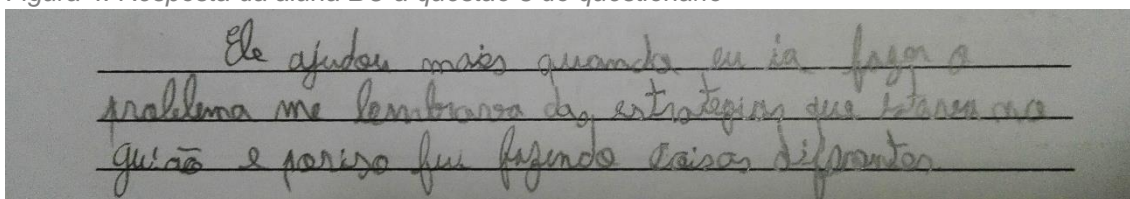 Ele ajudou mais quando eu ia fazer o
problema me lembrava das estratégias que estavam no
guião e poriso fui fazendo coisas diferentes